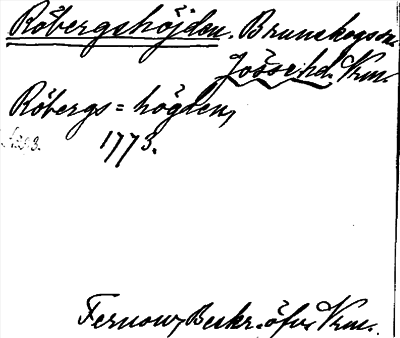 Röbergshöjden. Brunskogs sn.
Jösse hd. Krm.
Röbergs=högden,
1773.
Fernow, Beskr. öfv. Krm.